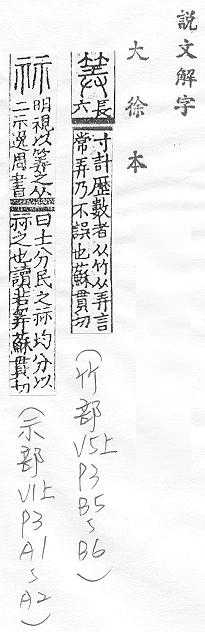 説文解字
大徐本
筭
長
六
寸計歷數者从竹从弄言
常弄乃不誤也蘇貫切
(竹部V5上P3B5~B6)
祘
明視以筭之从
二示逸周書
曰士分民之祘均分以
祘之也讀若筭蘇貫切
(示部V1上P3A1~A2)